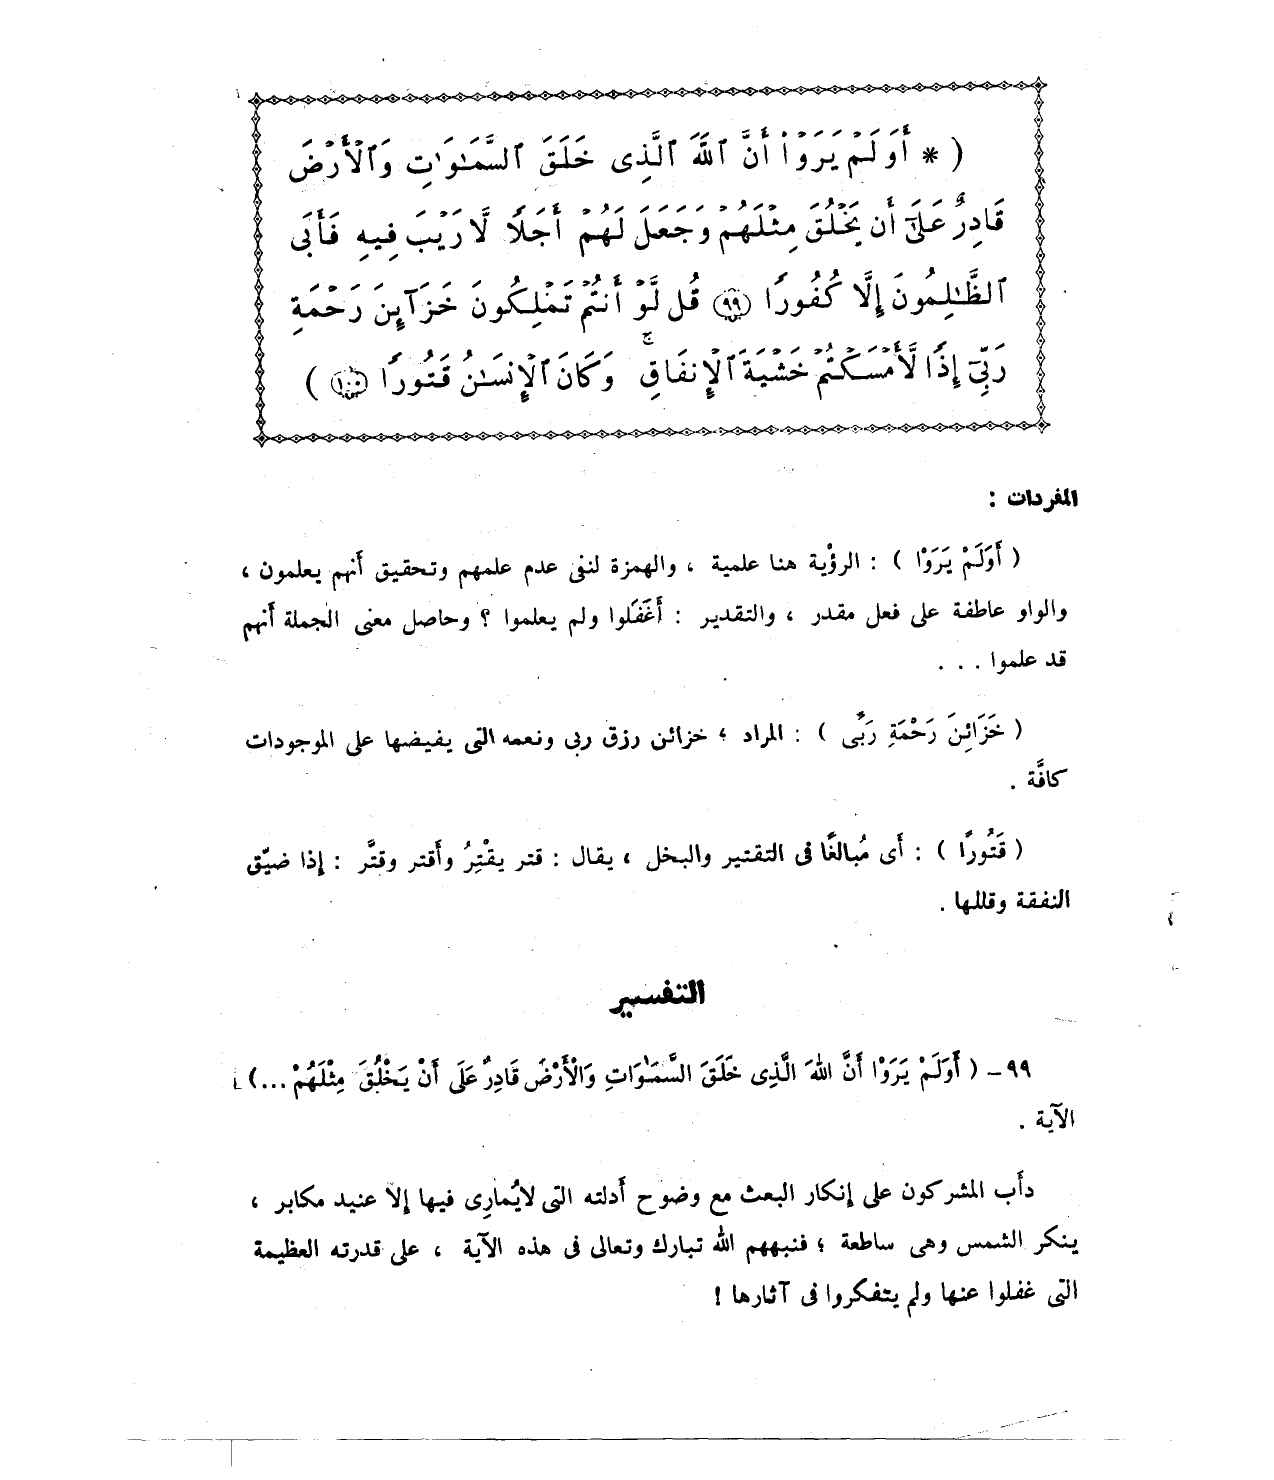 ( * أَوَلَمْ يَرَوْا۟ أَنَّ ٱللَّهَ ٱلَّذِى خَلَقَ ٱلسَّمَـٰوَٰتِ وَٱلْأَرْضَ
قَادِرٌ عَلَىٰٓ أَن يَخْلُقَ مِثْلَهُمْ وَجَعَلَ لَهُمْ أَجَلًا لَّا رَيْبَ فِيهِ فَأَبَى
ٱلظَّـٰلِمُونَ إِلَّا كُفُورًا ﴿٩٩﴾ قُل لَّوْ أَنتُمْ تَمْلِكُونَ خَزَآئِنَ رَحْمَةِ
رَبِّىٓ إِذًا لَّأَمْسَكْتُمْ خَشْيَةَ ٱلْإِنفَاقِ ۚ وَكَانَ ٱلْإِنسَـٰنُ قَتُورًا ﴿١٠٠﴾ )
المفردات :
( أَوَلَمْ يَرَوْا ) : الرؤْية هنا علمية ، والهمزة لنفى عدم علمهم وتحقيق أنهم يعلمون ،
والواو عاطفة على فعل مقدر ، والتقدير : أَغَفَلوا ولم يعلموا ؟ وحاصل معنى الجملة أنهم
قد علموا . . .
( خَزَائِنَ رَحْمَةِ رَبِّى ) : المراد ؛ خزائن رزق ربى ونعمه التى يفيضها على الموجودات
كافَّة .
( قَتُورًا ) : أى مُبالغًا فى التقتير والبخل ، يقال : قتر يقْتِرُ وأقتر وقتَّر : إذا ضيّق
النفقة وقللها .
التفسير
٩٩ – ( أَوَلَمْ يَرَوْا أَنَّ اللهَ الَّذِى خَلَقَ السَّمَٰوَاتِ وَالْأَرْضَ قَادِرٌ عَلَى أَنْ يَخْلُقَ مِثْلَهُمْ ...)
الآية .
دأَب المشركون على إنكار البعث مع وضوح أدلته التى لايُمارِى فيها إلا عنيد مكابر ،
ينكر الشمس وهى ساطعة ؛ فنبههم الله تبارك وتعالى فى هذه الآية ، على قدرته العظيمة
التى غفلوا عنها ولم يتفكروا فى آثارها !